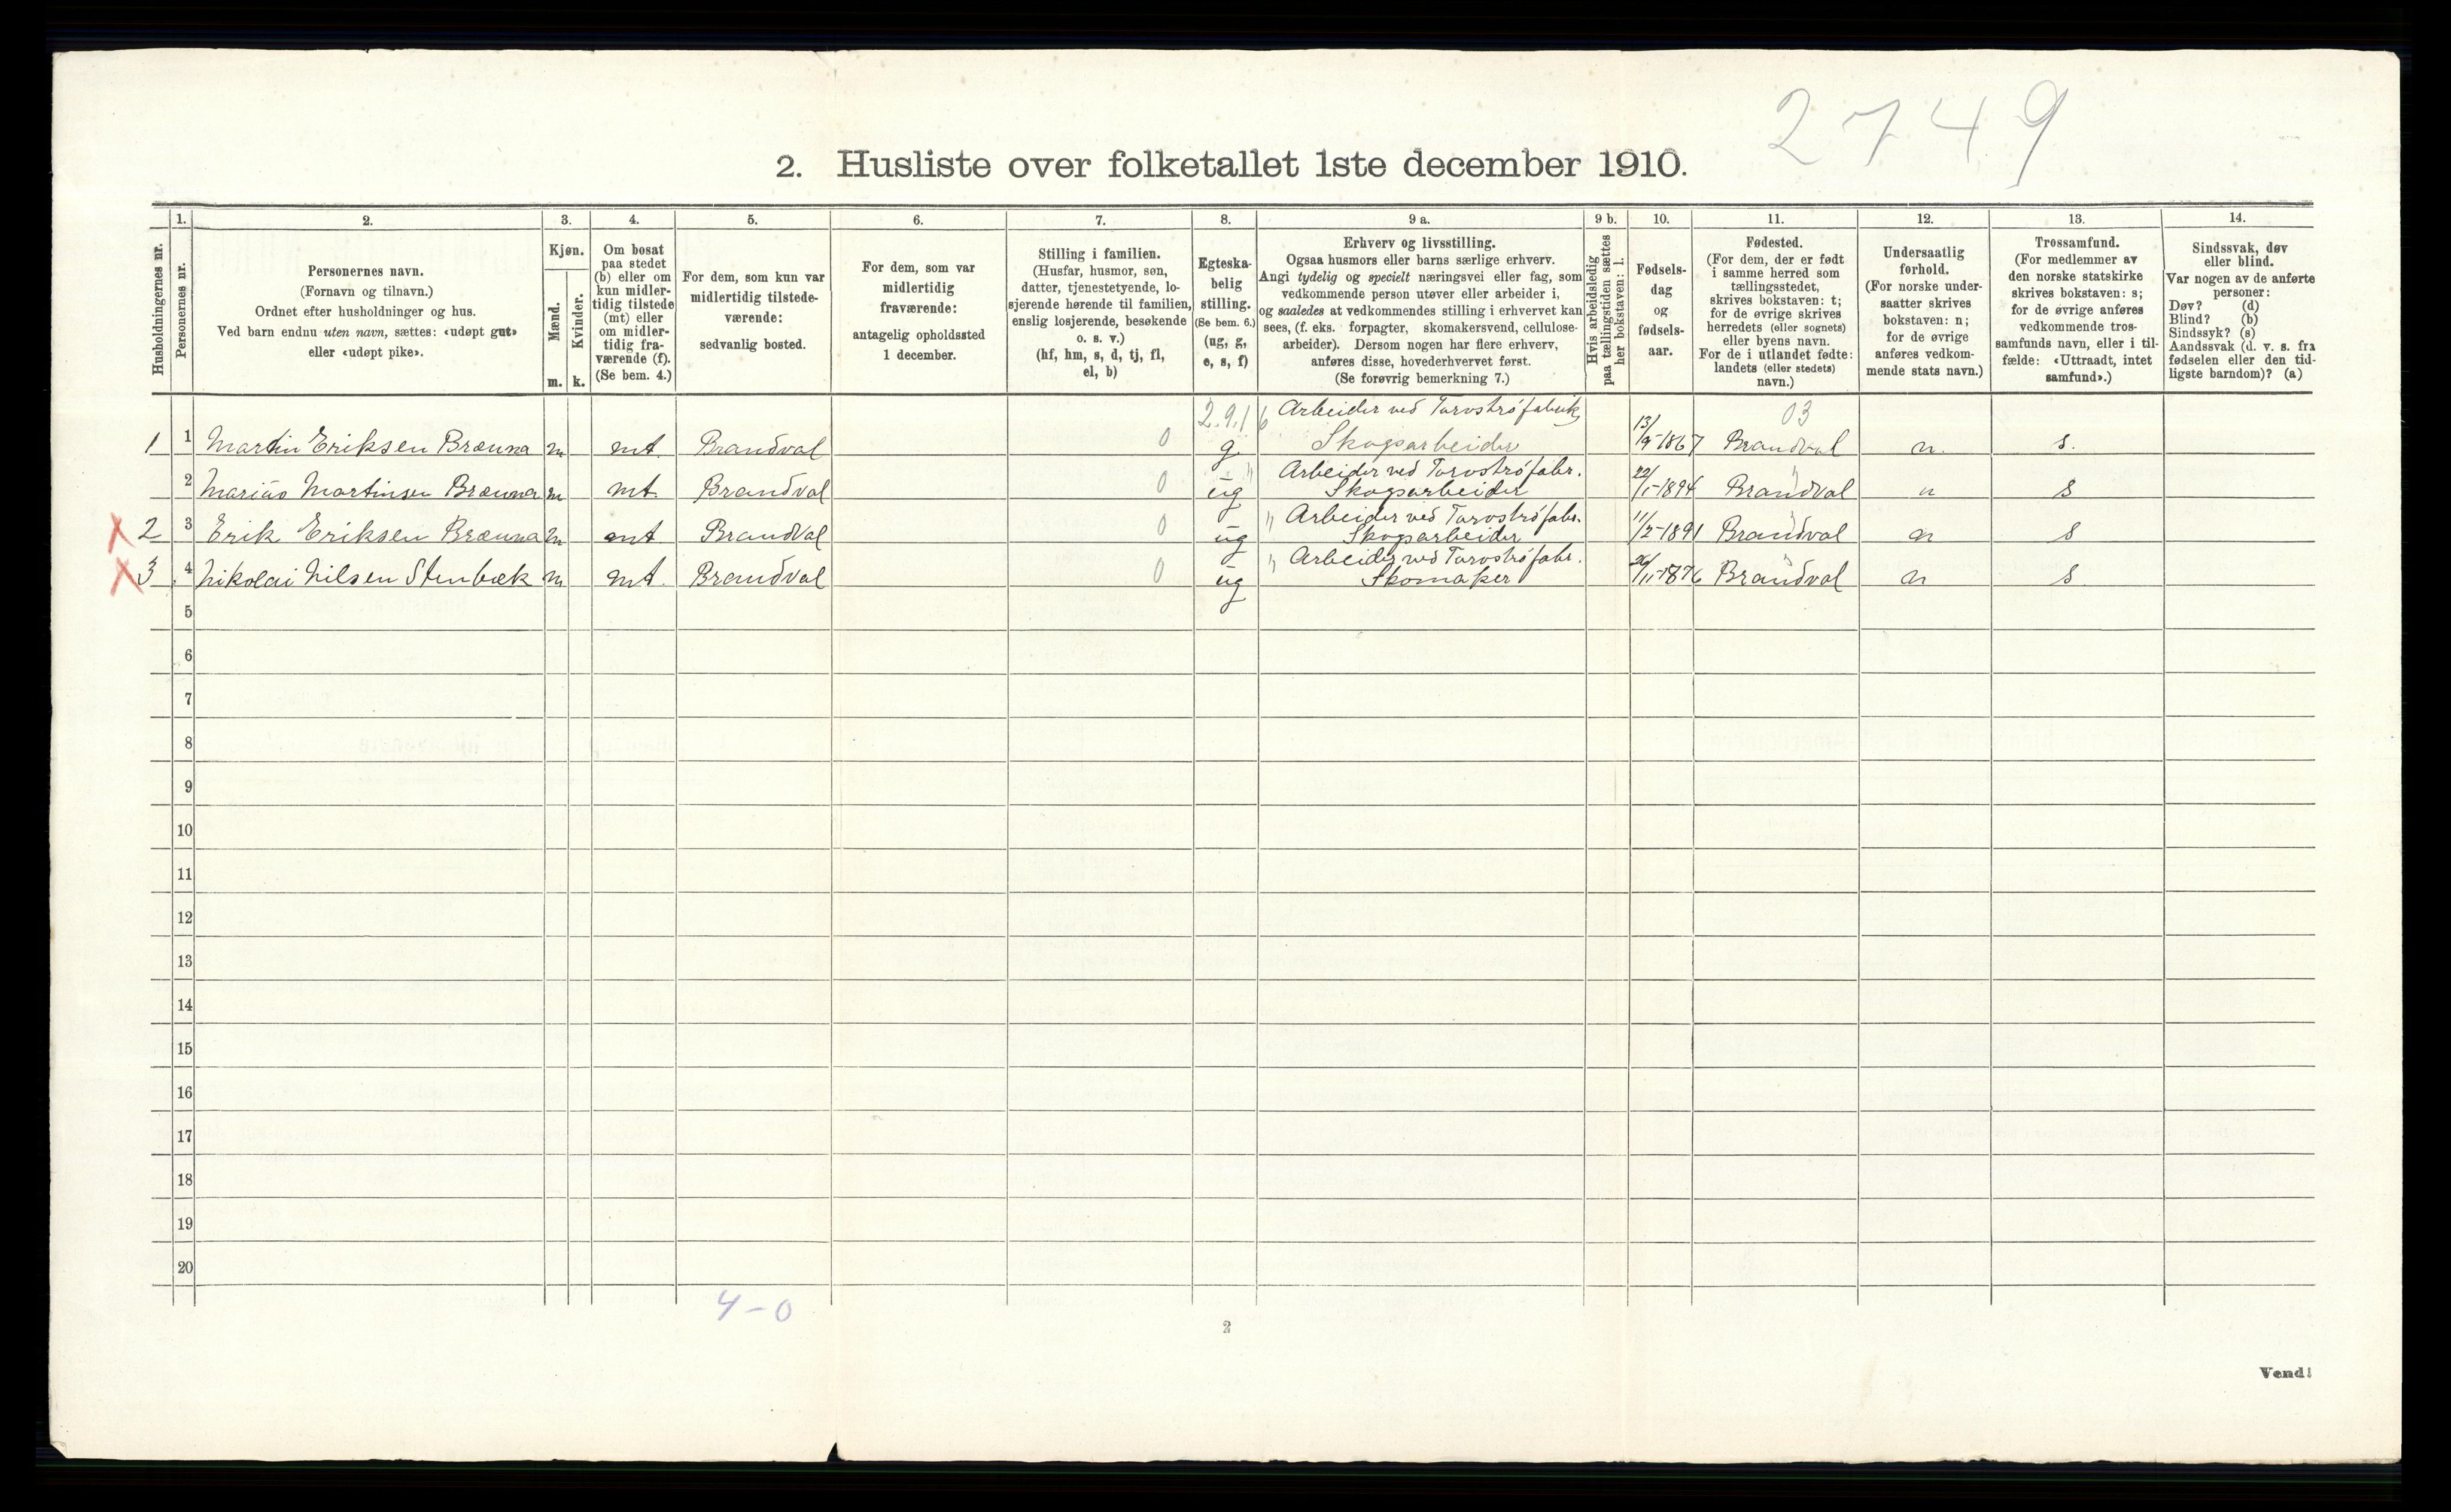 2749
2. Husliste over folketallet 1ste december 1910.
Husholdningernes nr.
1.
Personernes nr.
2.
Personernes navn.
(Fornavn og tilnavn.)
Ordnet efter husholdninger og hus.
Ved barn endnu uten navn, sættes: «udøpt gut»
eller «udøpt pike».
3.
Kjøn.
Mænd.
Kvinder.
m. k.
4.
Om bosat
paa stedet
(b) eller om
kun midler-
tidig tilstede
(mt) eller
om midler-
tidig fra-
værende (f).
(Se bem. 4.)
5.
For dem, som kun var
midlertidig tilstede-
værende:
sedvanlig bosted.
6.
For dem, som var
midlertidig
fraværende:
antagelig opholdssted
1 december.
7.
Stilling i familien.
(Husfar, husmor, søn,
datter, tjenestetyende, lo-
sjerende hørende til familien,
enslig losjerende, besøkende
o. s. v.)
(hf, hm, s, d, tj, fl,
el, b)
8.
Egteska-
belig
stilling.
(Se bem. 6.)
(ug, g,
e, s, f)
9 a.
Erhverv og livsstilling.
Ogsaa husmors eller barns særlige erhverv.
Angi tydelig og specielt næringsvei eller fag, som
vedkommende person utøver eller arbeider i,
og saaledes at vedkommendes stilling i erhvervet kan
sees, (f. eks. forpagter, skomakersvend, cellulose-
arbeider). Dersom nogen har flere erhverv,
anføres disse, hovederhvervet først.
(Se forøvrig bemerkning 7.)
9 b.
Hvis arbeidsledig
paa tællingstiden sættes
her bokstaven: l.
10.
Fødsels-
dag
og
fødsels-
aar.
11.
Fødested.
(For dem, der er født
i samme herred som
tællingsstedet,
skrives bokstaven: t;
for de øvrige skrives
herredets (eller sognets)
eller byens navn.
For de i utlandet fødte:
landets (eller stedets)
navn.)
12.
Undersaatlig
forhold.
(For norske under-
saatter skrives
bokstaven: n;
for de øvrige
anføres vedkom-
mende stats navn.)
13.
Trossamfund.
(For medlemmer av
den norske statskirke
skrives bokstaven: s;
for de øvrige anføres
vedkommende tros-
samfunds navn, eller i til-
fælde: «Uttraadt, intet
samfund».)
14.
Sindssvak, døv
eller blind.
Var nogen av de anførte
personer:
Døv? (d)
Blind? (b)
Sindssyk? (s)
Aandssvak (d. v. s. fra
fødselen eller den tid-
ligste barndom)? (a)
2.9.1 6 Arbeider ved Torvströfabrik 03
1 1 Martin Eriksen Brænna m mt. Brandval 0 g Skogsarbeider 13/9-1867 Brandval n. s.
" Arbeider ved Torvströfabr. "
2 Mariūs Martinsen Brænna m mt. Brandval 0 ūg Skogsarbeider 22/1-1894 Brandval n s
" Arbeider ved Torvströfabr. "
X 2 3 Erik Eriksen Brænna m mt Brandval 0 ūg Skogsarbeider 11/2-1891 Brandval n s
" Arbeider ved Torvströfabr. "
X 3 4 Nikolai Nilsen Stenbæk m mt. Brandval 0 ūg Skomaker 26/11-1876 Brandval n s
5
6
7
8
9
10
11
12
13
14
15
16
17
18
19
20
4-0
2
Vend!